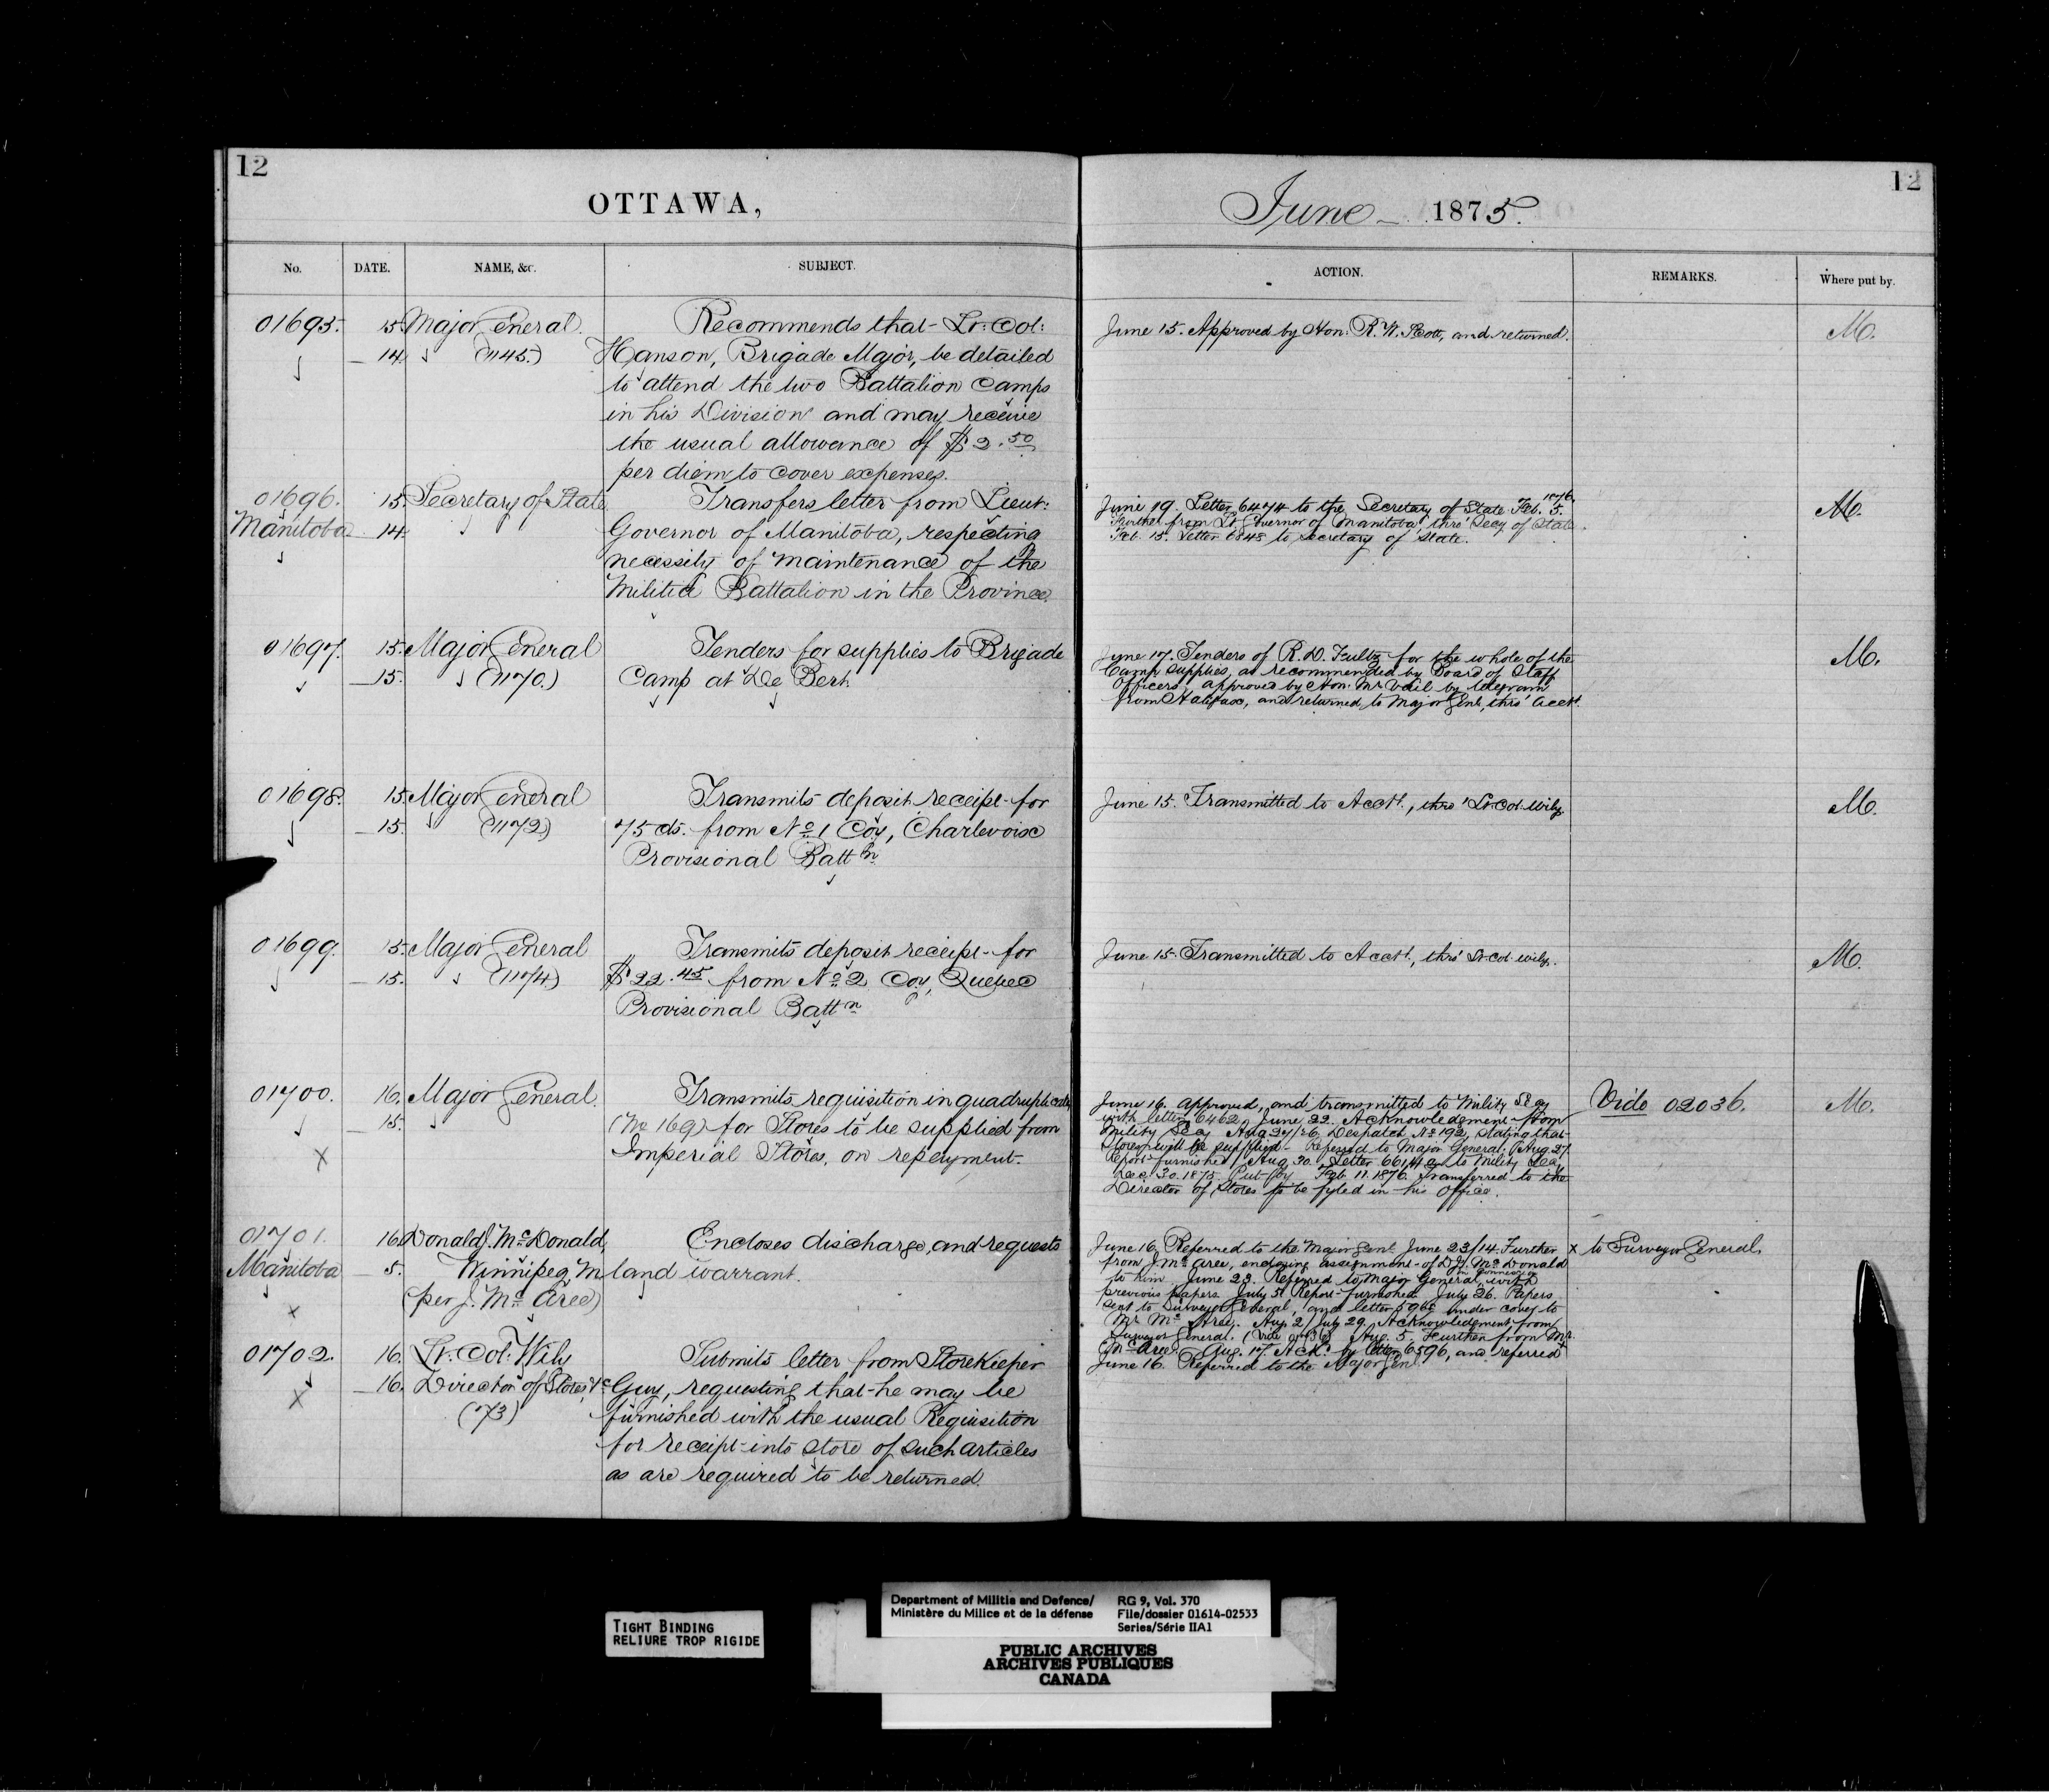 12
OTTAWA,
No.
DATE.
NAME, &c.
SUBJECT.
01695.
15. Major General.
14. (1145.)
Recommends that Lt: Col:
Hanson, Brigade Major, be detailed
to attend the two Battalion Camps
in his Division and may receive
the usual allowance of $2.50
per diem to cover expenses.
01696.
Manitoba
15. Secretary of State
14.
Transfers letter from Lieut:
Governor of Manitoba, respecting
necessity of maintenance of the
Militia Battalion in the Province.
01697.
15. Major General
15. (1170.)
Tenders for supplies to Brigade
Camp at De Bert.
01698.
15. Major General
15. (1172)
Transmits deposit receipt for
75 cts. from No 1 Coy, Charlevoix
Provisional Battn
01699.
15. Major General
15. (1174)
Transmits deposit receipt for
$22.45 from No 2 Coy, Quebec
Provisional Battn
01700.
16. Major General.
15.
Transmits requisition in quadruplicate
(No 169) for Stores to be supplied from
Imperial Stores, on repayment.
01701.
Manitoba
16. Donald J. McDonald,
5. Winnipeg, M
(per J. McAree)
Encloses discharge, and requests
land warrant.
01702.
16. Lt. Col. Wily
16. Director of Stores, &c
(73)
Submits letter from Storekeeper
Guy, requesting that he may be
furnished with the usual Requisition
for receipt into store of such articles
as are required to be returned.
12
June 1875.
ACTION.
REMARKS.
Where put by.
June 15. Approved by Hon: R. W. Scott, and returned.
M.
June 19. Letter 6474 to the Secretary of State. Feb. 5. 1876
Further from Lt Governor of Manitoba, thro' Secy of State.
Feb. 15. Letter 6848 to Secretary of State.
M.
June 17. Tenders of R. D. Fultz for the whole of the
Camp supplies, as recommended by Board of Staff
Officers, approved by Hon. Mr Vail by telegram
from Halifax, and returned to Major Genl, thro' Acct.
M.
June 15. Transmitted to Acct., thro' Lt Col. Wily.
M.
June 15. Transmitted to Acct., thro' Lt Col. Wily.
M.
June 16. Approved, and transmitted to Mility Secy
with letter 6462, June 22. Acknowledgment from
Mility Secy Aug 27/26. Despatch No 192, stating that
Stores will be supplied. Referred to Major General, Aug. 27.
Report furnished, Aug. 30. Letter 6614 to Mility Secy
Dec. 30. 1875. Put by Feb. 11. 1876. Transferred to the
Director of Stores to be fyled in his Office.
Vide 02036.
M.
June 16. Referred to the Major Genl. June 23/14. Further
from J. McAree, enclosing assignment of D. J. McDonald
to him. June 23. Referred to Major General, in connexion with
previous papers. July 5. Report furnished. July 26. Papers
sent to Surveyor General, and letter under cover to
Mr McAree. Aug. 2/July 29. Acknowledgment from
Surveyor General. Aug. 5. Further from Mr
McAree. Aug. 17. Ackd by letter 6596, and referred
x to Surveyor General.
June 16. Referred to the Major Genl.
TIGHT BINDING
RELIURE TROP RIGIDE
Department of Militia and Defence/
Ministère du Milice et de la défense
RG 9, Vol. 370
File/dossier 01614-02533
Series/Série IIA1
PUBLIC ARCHIVES
ARCHIVES PUBLIQUES
CANADA